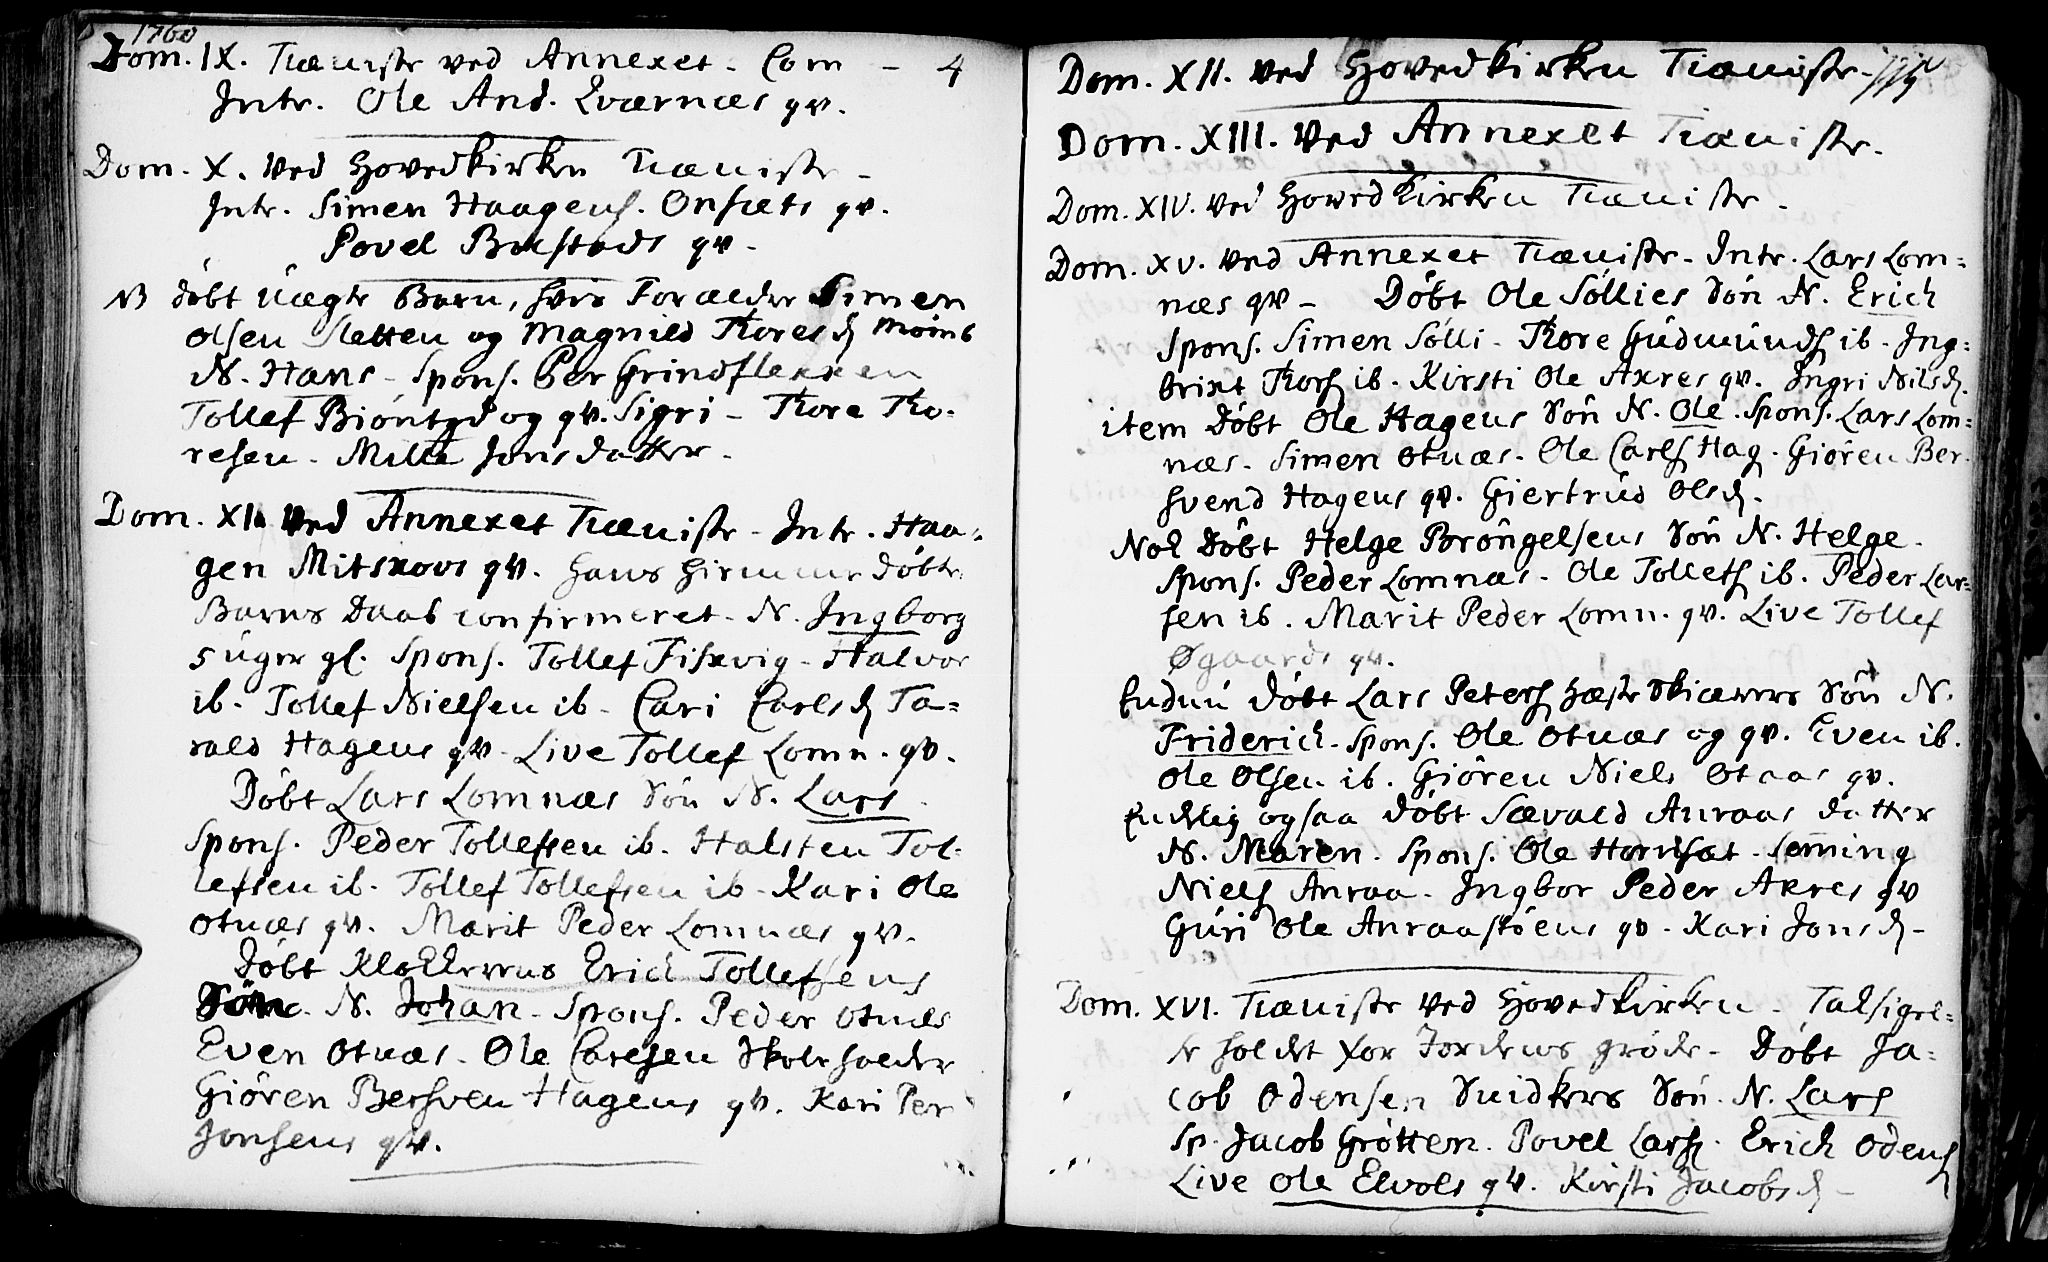 1760
Dom. IX. Tieniste ved Annexet - Com - 4
Intr. Ole And. Qværnæs qv.
Dom. X. ved Hovedkirken Tieniste -
Intr. Simen Haagens. Onsæts qv.
Povel Bulstads qv -
NB døbt Uægte Barn, hvis Forældre Simen
Olsen Sletten og Magnild Thoresd. Mömb
N. Hans - Spons. Per Grindflekken
Tollef Biöntgd og qv. Sigri - Thore Tho-
resen - Mille Jonsdatter -
Dom. XI. ved Annexet Tieniste - Intr. Haa-
gen Mitskovs qv. Hans Hiemme døbte
Barns Daab confirmeret - N. Ingborg
5 uger gl. Spons. Tollef Fiskvig - Halvor
ib. Tollef Nielsen ib - Cari Carlsd. Ta-
rald Hagens qv - Live Tollef Lomn. qv.
Döbt Lars Lomnæs Sön N. Lars
Spons. Peder Tollefsen ib. Halsten Tol-
lefsen ib. Tollef Tollefsen ib - Kari Ole
Otnæs qv. Marit Peder Lomnæs qv.
Döbt Klokkerens Erich Tollefsens
Sön. N. Johan - Spons. Peder Otnæs
Even Otnæs - Ole Carlsen Skoleholder
Giören Bersven Hagens qv. Kari Per
Jonsens qv.
Dom. XII. ved Hovedkirken Tieniste -
Dom. XIII. ved Annexet Tieniste.
Dom. XIV. ved Hovedkirken Tieniste -
Dom. XV. ved Annexet Tieniste - Intr. Lars Lom-
næs qv - Döbt Ole Söllies Sön N. Erich
Spons. Simen Sölli - Thore Gudmunds. ib - Ing-
brixt Thors. ib - Kirsti Ole Axres qv. Ingri Nilsd.
item Döbt Ole Hagens Sön N. Ole. Spons. Lars Lom-
næs - Simen Otnæs - Ole Carls. Hag. Giören Ber-
svend Hagens qv. Giertrud Olsd.
Nok Döbt Helge Bröngelsens Sön N. Helge -
Spons. Peder Lomnæs - Ole Tollefs. ib. Peder Lar-
sen ib. Marit Peder Lomn. qv. Live Tollef
Øgaards qv.
Endnu döbt Lars Peters. Hæste Skiærers Sön N.
Friderich - Spons. Ole Otnæs og qv. Even ib.
Ole Olsen ib. Giören Niels Otnæs qv.
Endelig ogsaa döbt Sævald Anraas datter
N. Maren. Spons. Ole Hornset - Seming
Niels. Anraa - Ingbor Peder Axres qv
Guri Ole Anraastöens qv - Kari Jonsd. -
Dom. XVI. Tieniste ved Hovedkirken - Taksigel-
se holdet for Jordens gröde - Döbt Ja-
cob Odensen Snidkers Sön. N. Lars
Sp. Jacob Grötten. Povel Lars. Erich Odens.
Live Ole Elvols qv. Kirsti Jacobsd. -